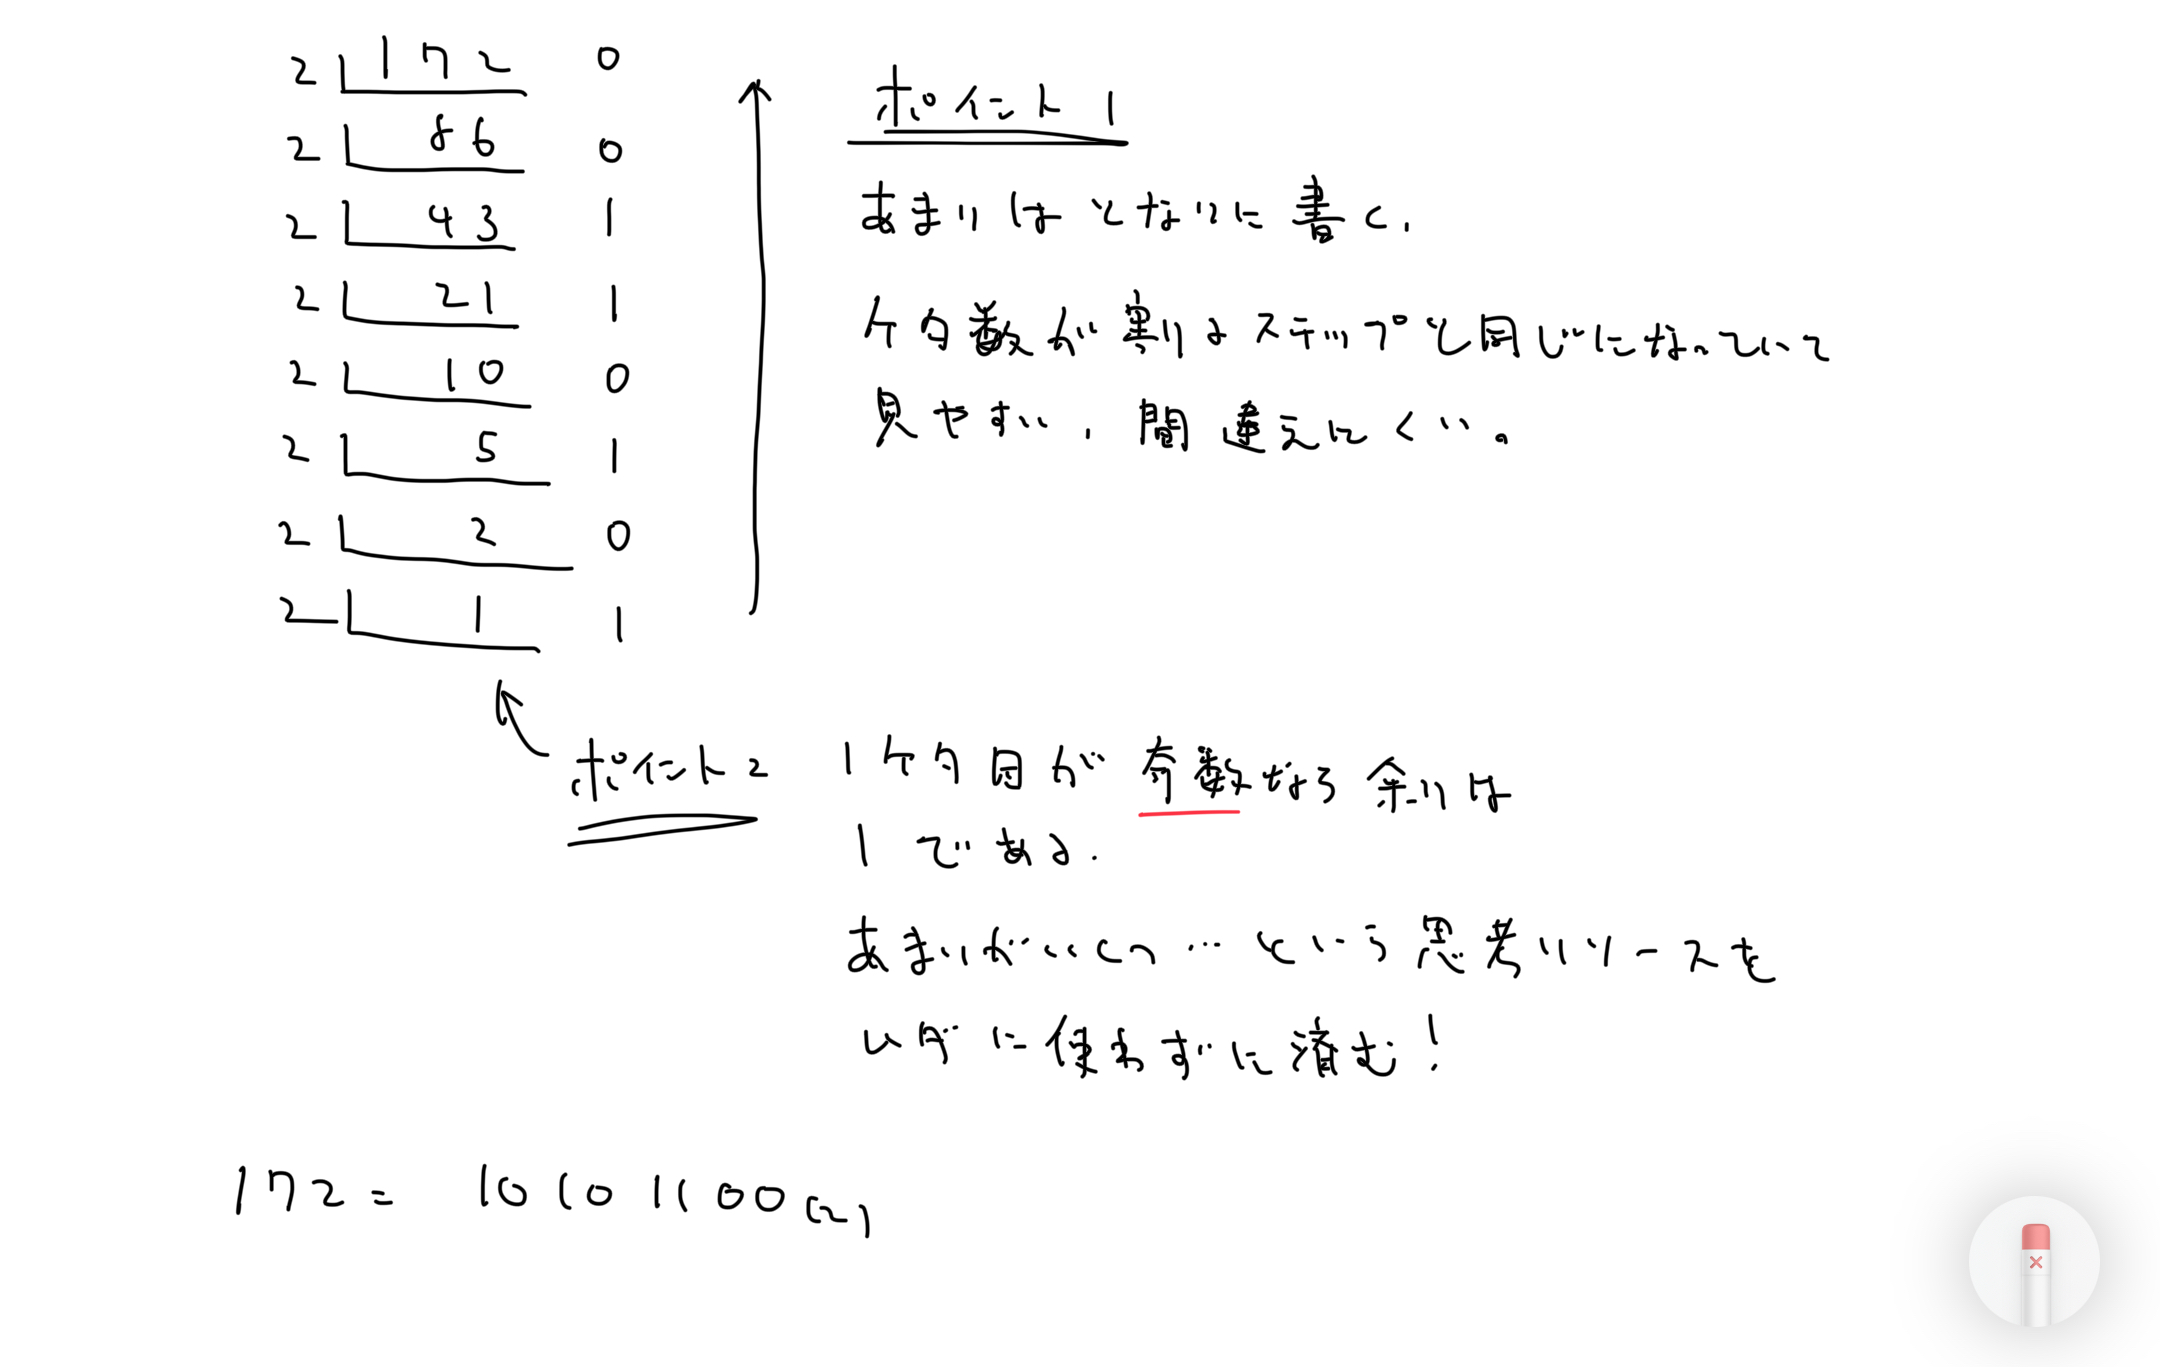 2 172 0
2 86 0
2 43 1
2 21 1
2 10 0
2 5 1
2 2 0
2 1 1
ポイント1
あまりはとなりに書く,
ケタ数が割るステップと同じになっていて
見やすい,間違えにくい。
ポイント2
1ケタ目が奇数なら余りは
1である.
あまりがいくつ…という思考リソースを
ムダに使わずに済む!
172= 10101100(2)